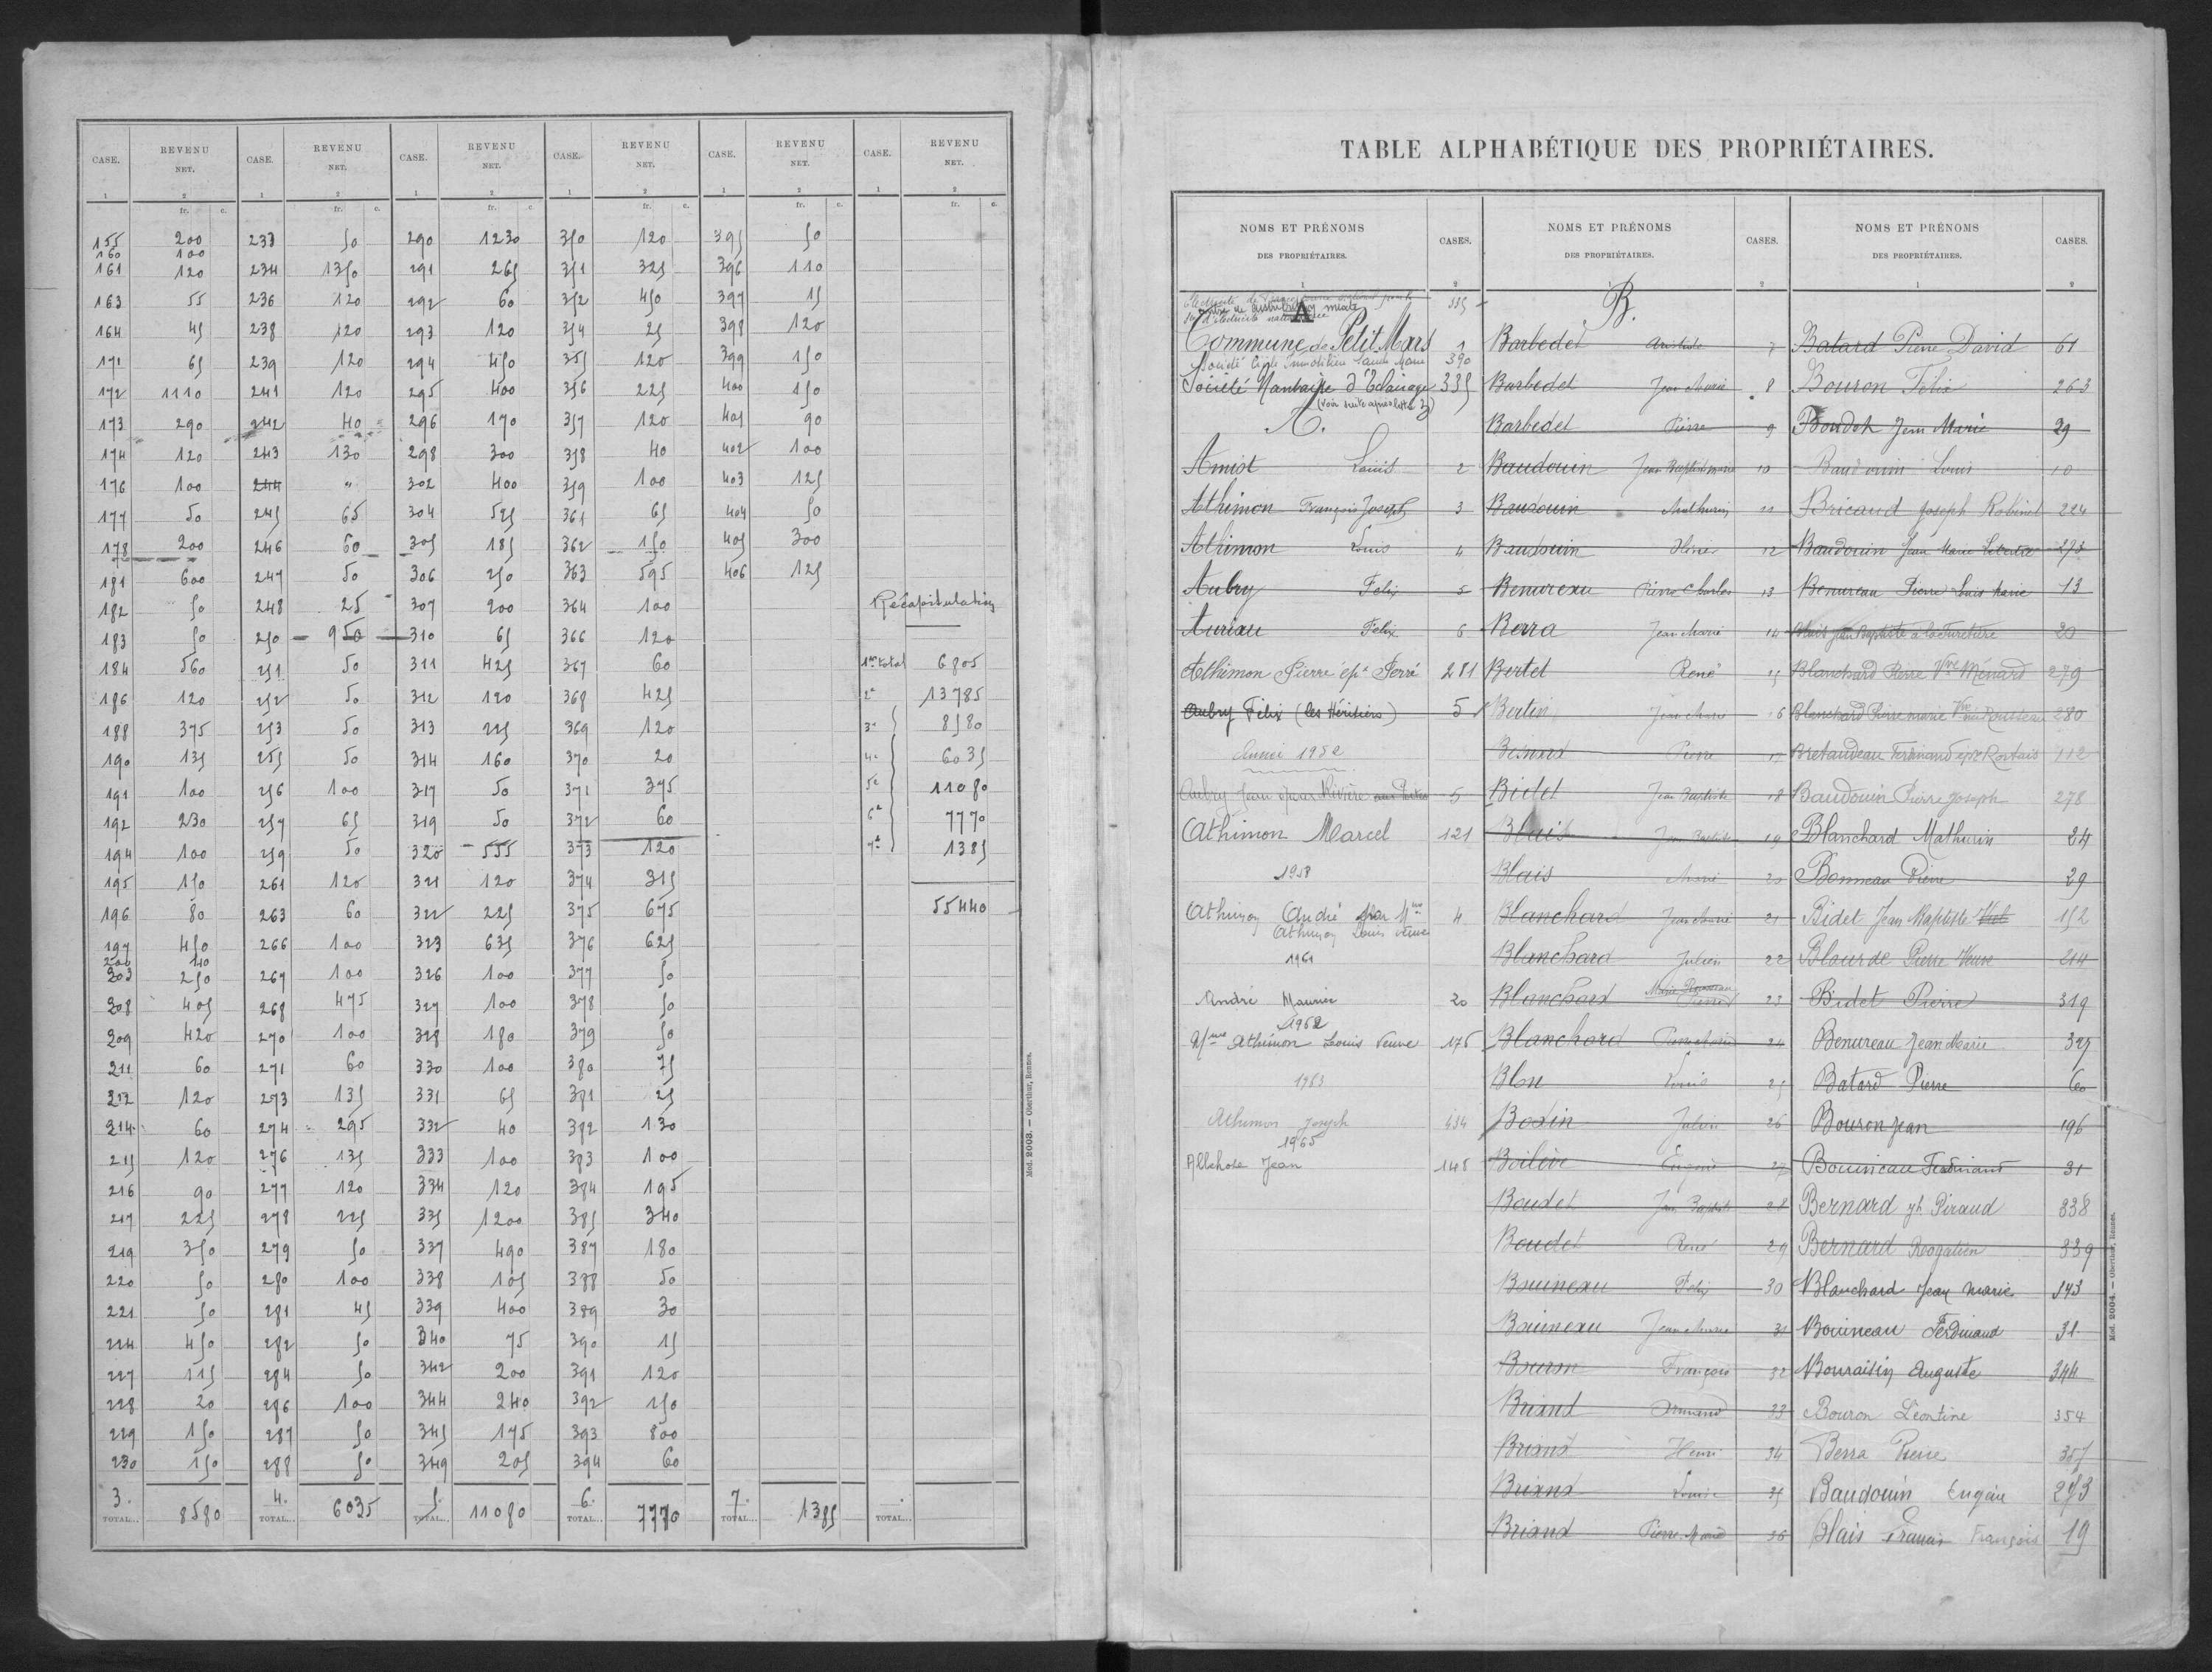 CASE. REVENU NET. CASE. REVENU NET. CASE. REVENU NET. CASE. REVENU NET. CASE. REVENU NET. CASE. REVENU NET.
1 2 1 2 1 2 1 2 1 2 1 2
fr. c. fr. c. fr. c. fr. c. fr. c. fr. c.
155 200 233 50 290 1230 350 120 395 50
160 100
161 120 234 1350 291 265 351 325 396 110
163 55 236 120 292 60 352 450 397 15
164 45 238 120 293 120 354 25 398 120
171 65 239 120 294 450 355 120 399 150
172 1110 241 120 295 400 356 225 400 150
173 290 242 40 296 170 357 120 401 90
174 120 243 130 298 300 358 40 402 100
176 100 244 " 302 400 359 100 403 125
177 50 245 65 304 525 361 65 404 50
178 200 246 60 305 185 362 150 405 300
181 600 247 50 306 250 363 595 406 125
182 50 248 25 307 200 364 100 Récapitulation
183 50 250 950 310 65 366 120
184 560 251 50 311 425 367 60 1er total 6805
186 120 252 50 312 120 368 425 2e 13785
188 375 253 50 313 225 369 120 3e 8580
190 135 255 50 314 160 370 20 4e 6035
191 100 256 100 317 50 371 375 5e 11080
192 230 257 65 319 50 372 60 6e 7770
194 100 259 50 320 555 373 120 7e 1385
195 150 261 120 321 120 374 315
196 80 263 60 322 225 375 675 55440
197 450 266 100 323 635 376 625
200 140
203 250 267 100 326 100 377 50
208 405 268 475 327 100 378 50
209 420 270 100 328 180 379 50
211 60 271 60 330 100 380 75
212 120 273 135 331 65 381 25
214 60 274 295 332 40 382 130
215 120 276 135 333 100 383 100
216 90 277 120 334 120 384 195
217 225 278 225 335 1200 385 340
219 350 279 50 337 490 387 180
220 50 280 100 338 105 388 50
221 50 281 45 339 400 389 30
224 450 282 50 340 75 390 15
227 115 284 50 342 200 391 120
228 20 286 100 344 240 392 250
229 150 287 50 345 175 393 800
230 150 288 50 349 205 394 60
3. 4. 5. 6. 7.
TOTAL... 8580 TOTAL... 6035 TOTAL... 11080 TOTAL... 7770 TOTAL... 1385 TOTAL...
Mod. 2003. — Oberthur, Rennes.
TABLE ALPHABÉTIQUE DES PROPRIÉTAIRES.
NOMS ET PRÉNOMS DES PROPRIÉTAIRES. CASES. NOMS ET PRÉNOMS DES PROPRIÉTAIRES. CASES. NOMS ET PRÉNOMS DES PROPRIÉTAIRES. CASES.
1 2 1 2 1 2
A
335
Commune de Petit Mars 1
390
Société Nantaise d'Eclairage 335
(voir suite après lettre Z)
A.
Amiot Louis 2
Athimon François Joseph 3
Athimon Louis 4
Aubry Felix 5
Auriau Felix 6
Athimon Pierre ép. Ferré 281
Aubry Felix (les Héritiers) 5
Année 1952
Aubry Jean 5
Athimon Marcel 121
1958
Athimon André par Mme 4
Athimon Louis veuve
1961
André Maurice 20
1962
Mme Athimon Louis Veuve 176
1963
Athimon Joseph 434
1965
Jean 145
B.
Barbedet Aristide 7
Barbedet Jean Marie 8
Barbedet Pierre 9
Baudouin Jean Baptiste Marie 10
Baudouin Mathurin 11
Baudouin Olivier 12
Benureau Pierre Charles 13
Berra Jean Marie 14
Bertet René 15
Bertin Jean Marie 16
Besnard Pierre 17
Bidet Jean Baptiste 18
Blais Jean Baptiste 19
Blais Marie 20
Blanchard Jean Marie 21
Blanchard Julien 22
Blanchard Pierre 23
Blanchard 24
Louis 25
Bodin Julien 26
Eugène 27
Boudet Jean Baptiste 28
Boudet René 29
Bouineau Felix 30
Bouineau Jean Marie 31
Bouron François 32
Briand Armand 33
Briand Henri 34
Briand Louise 35
Briand Pierre Marie 36
Batard Pierre David 61
Bouron Felix 263
Jean Marie 29
Baudouin Louis 10
Bricaud Joseph Robinet 224
Baudouin Jean Marie 273
Benureau Pierre Louis Marie 13
Blais Jean Baptiste à la Furetière 20
Blanchard Pierre Vve Ménard 279
Blanchard Pierre Marie Vve née Rousseau 280
Bretaudeau Ferdinand 112
Baudouin Pierre Joseph 278
Blanchard Mathurin 24
Bonneau Pierre 29
Bidet Jean Baptiste 152
Pierre Veuve 214
Bidet Pierre 319
Benureau Jean Marie 327
Batard Pierre 60
Bouron Jean 196
Bouineau Ferdinand 31
Bernard Piraud 338
Bernard Rogatien 339
Blanchard Jean Marie 143
Bouineau Ferdinand 31
Bouraisin Auguste 344
Bouron Léontine 354
Berra Pierre 357
Baudouin Eugène 273
Blais Francis François 19
Mod. 2004. — Oberthur, Rennes.